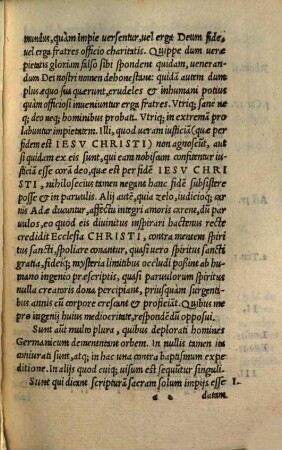 mundus, quàm impie versentur, uel erga Deum fide,
uel erga fratres officio charitatis. Quippe dum ueræ
pietatis gloriam falso sibi spondent quidam, ueneran-
dum Dei nostri nomen dehonestant: quidã autem dum
plus æquo sua quærunt, crudeles & inhumani potius
quàm officiosi inueniuntur erga fratres. Vtriq; sane ne
q; deo neq; hominibus probati. Vtriq; in extremã pro
labuntur impietatem. Illi, quod ueram iusticiã (quæ per
fidem est IESV CHRISTI) non agnoscũt, aut
si quidam ex eis sunt, qui eam nobiscum confitentur iu
sticiã esse corã deo, quæ est per fidẽ IESV CHRI
STI, nihilosecius tamen negant hanc fidẽ subsistere
posse & in paruulis. Alij autẽ, quia zelo, iudicioq; car
nis Adæ ducuntur, affectũ integri amoris carẽt, dũ par
uulos, eo quod eis diuinitus inspirari hactenus recte
credidit Ecclesia CHRISTI, contra mentem spiri
tus sancti, spoliare conantur, quasi uero spiritus sancti
gratia, fideiq; mysteria limitibus occludi possint ab hu
mano ingenio præscriptis, quasi paruulorum spiritus
nulla creatoris dona percipiant, priusquàm surgenti-
bus annis cũ corpore crescant & proficiãt. Quibus me
pro ingenij huius mediocritate, respondẽdũ opposui.
Sunt aũt multo plura, quibus deplorati homines
Germanicum dementant orbem. In nullis tamen ita
coniurati sunt, atq; in hac una contra baptismum expe
ditione. In alijs quod cuiq; uisum est sequũtur singuli.
Sunt qui dicant scripturã sacram solum impijs esse I.
a datam.